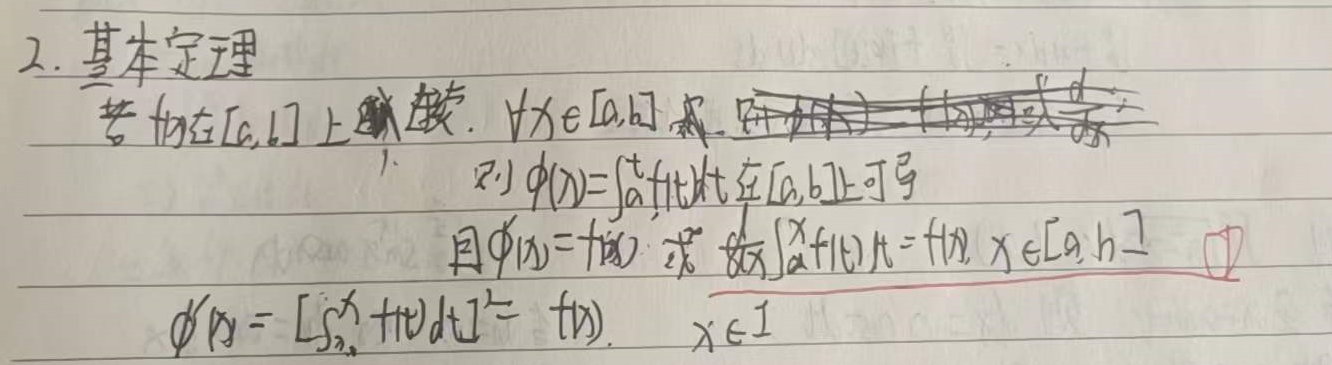 2. 基本定理
若 f(x)在[a,b]上连续. ∀x∈[a,b]
则 φ(x)=∫ₐᵗ f(t)dt 在[a,b]上可导
且φ'(x)=f(x). 或 d/dx ∫ₐˣ f(t)dt = f(x), x∈[a,b] ①
φ'(x) = [∫ₓ₀ˣ f(t) dt]' = f(x). x∈I